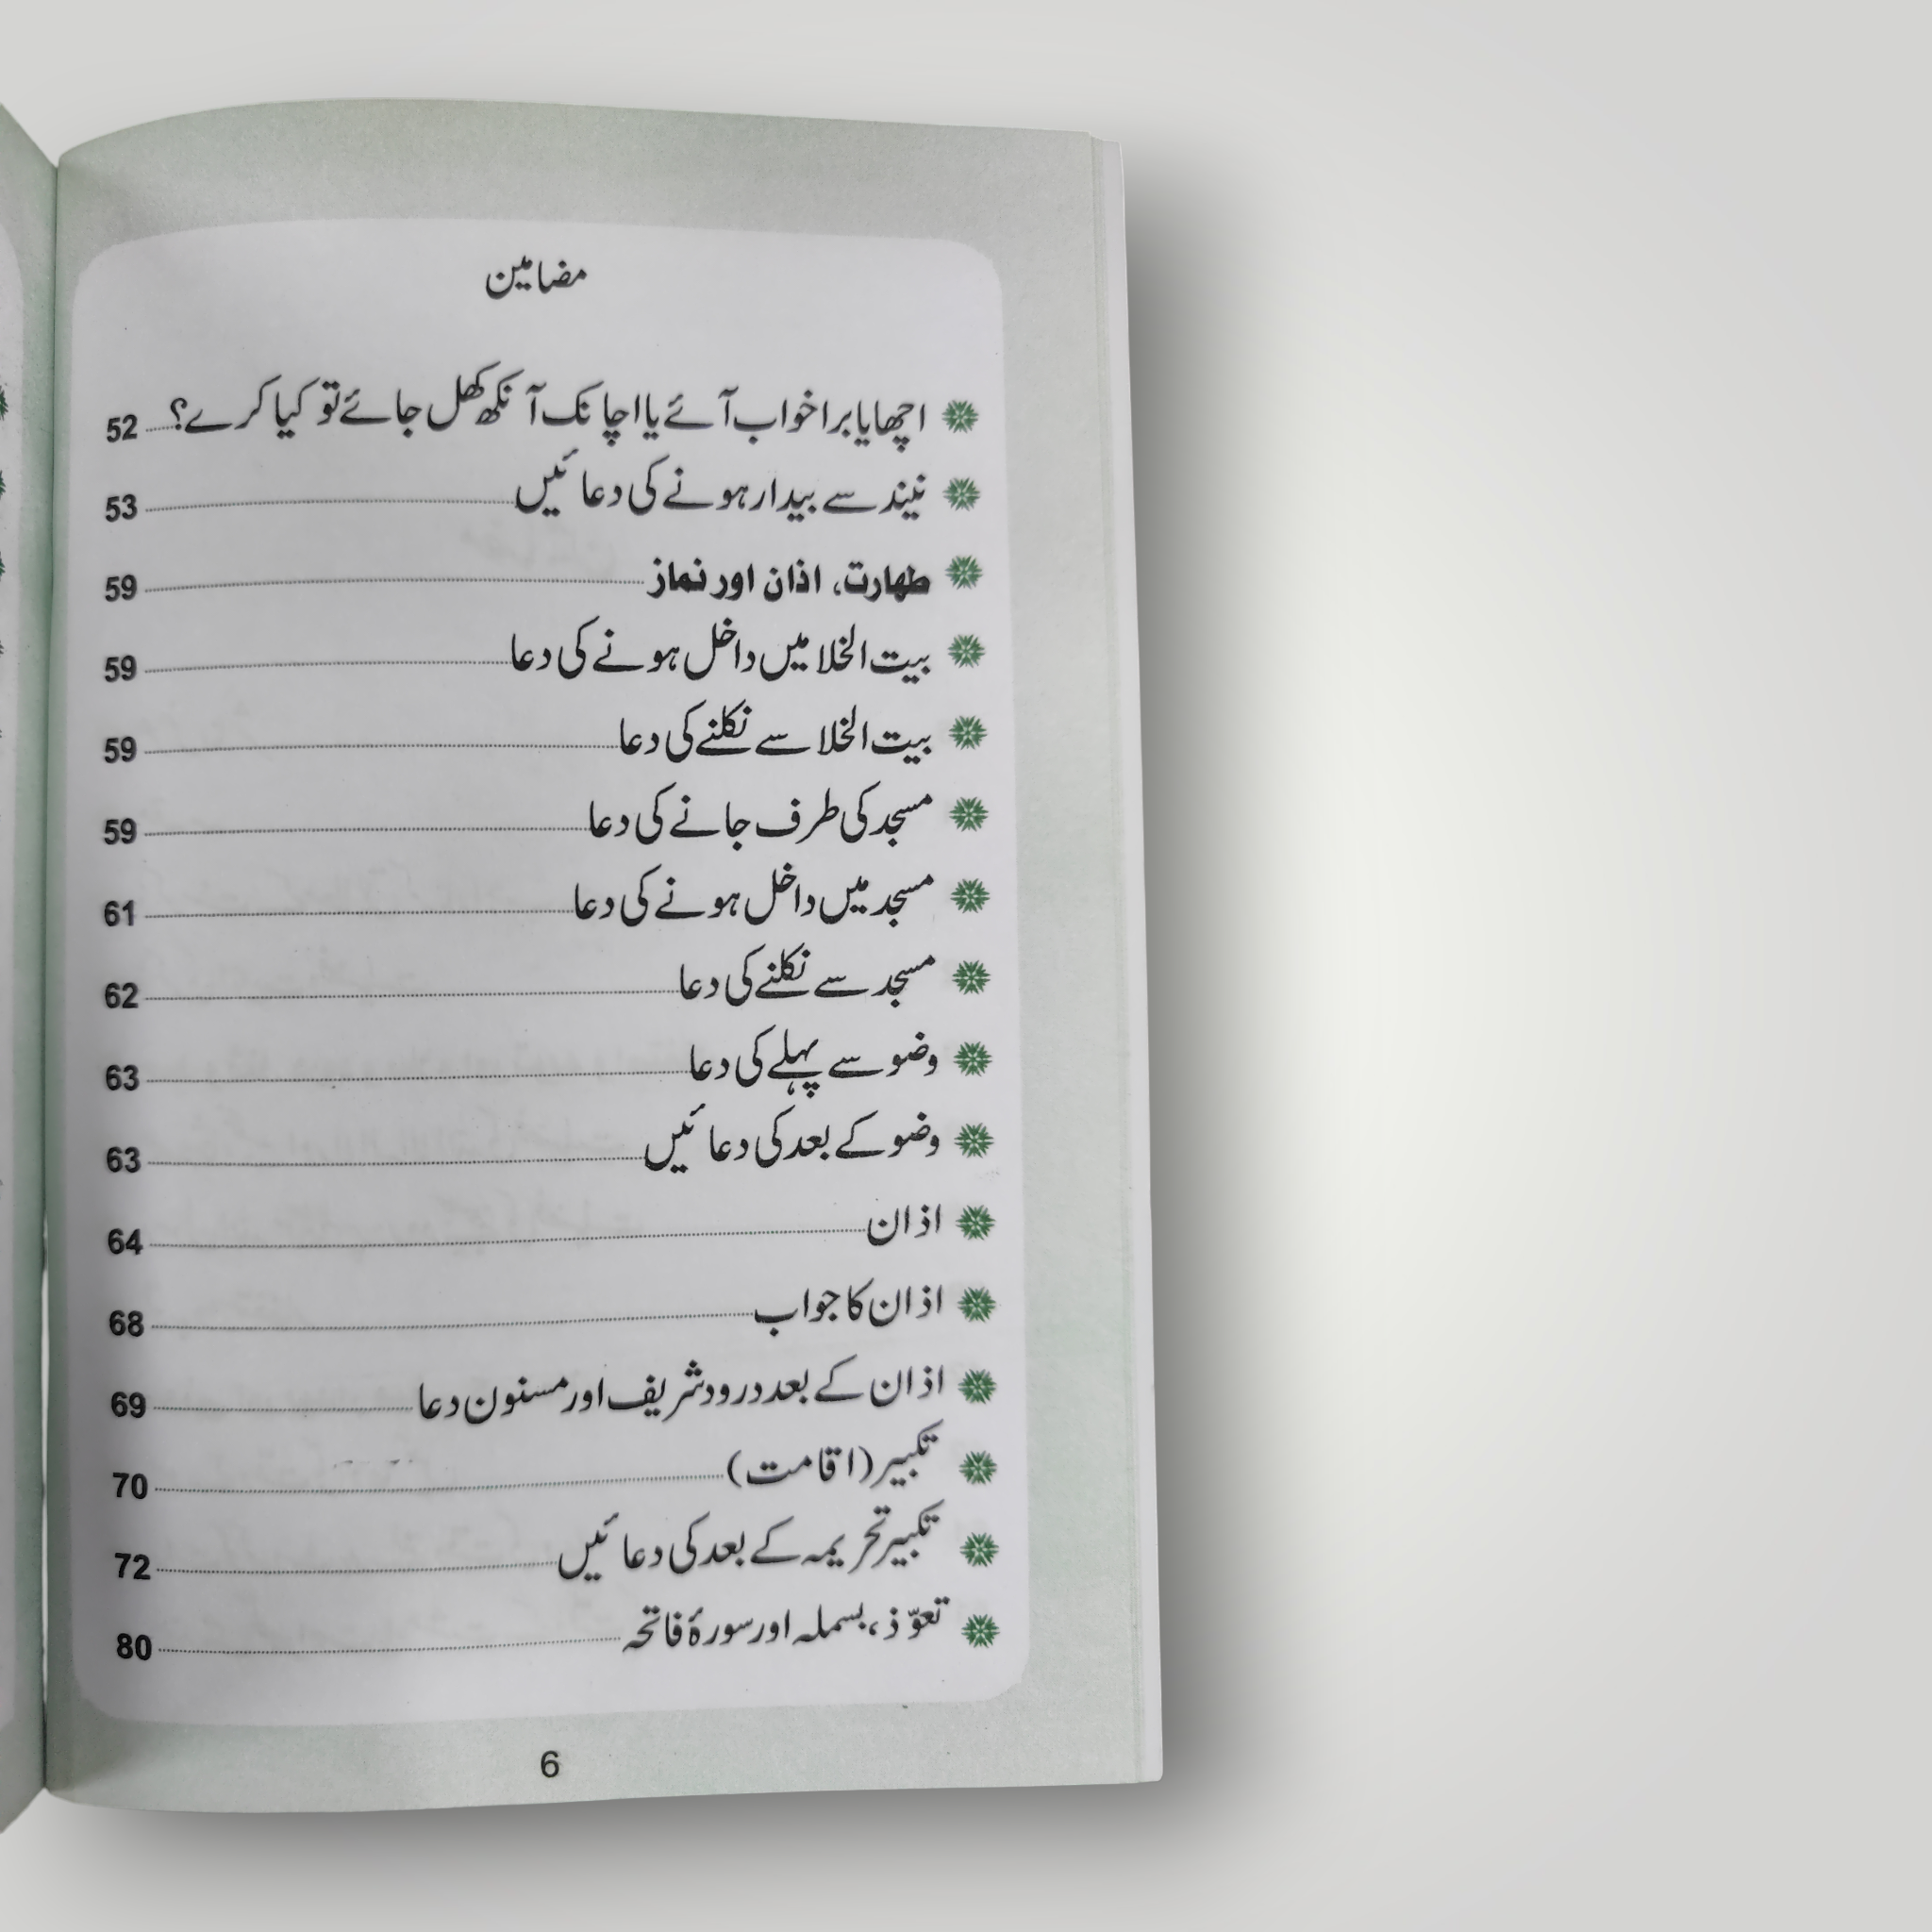 مضامین
اچھا یا برا خواب آئے یا اچانک آنکھ کھل جائے تو کیا کرے؟ 52
نیند سے بیدار ہونے کی دعائیں 53
طہارت، اذان اور نماز 59
بیت الخلا میں داخل ہونے کی دعا 59
بیت الخلا سے نکلنے کی دعا 59
مسجد کی طرف جانے کی دعا 59
مسجد میں داخل ہونے کی دعا 61
مسجد سے نکلنے کی دعا 62
وضو سے پہلے کی دعا 63
وضو کے بعد کی دعائیں 63
اذان 64
اذان کا جواب 68
اذان کے بعد درود شریف اور مسنون دعا 69
تکبیر (اقامت) 70
تکبیر تحریمہ کے بعد کی دعائیں 72
تعوّذ، بسملہ اور سورۂ فاتحہ 80
6